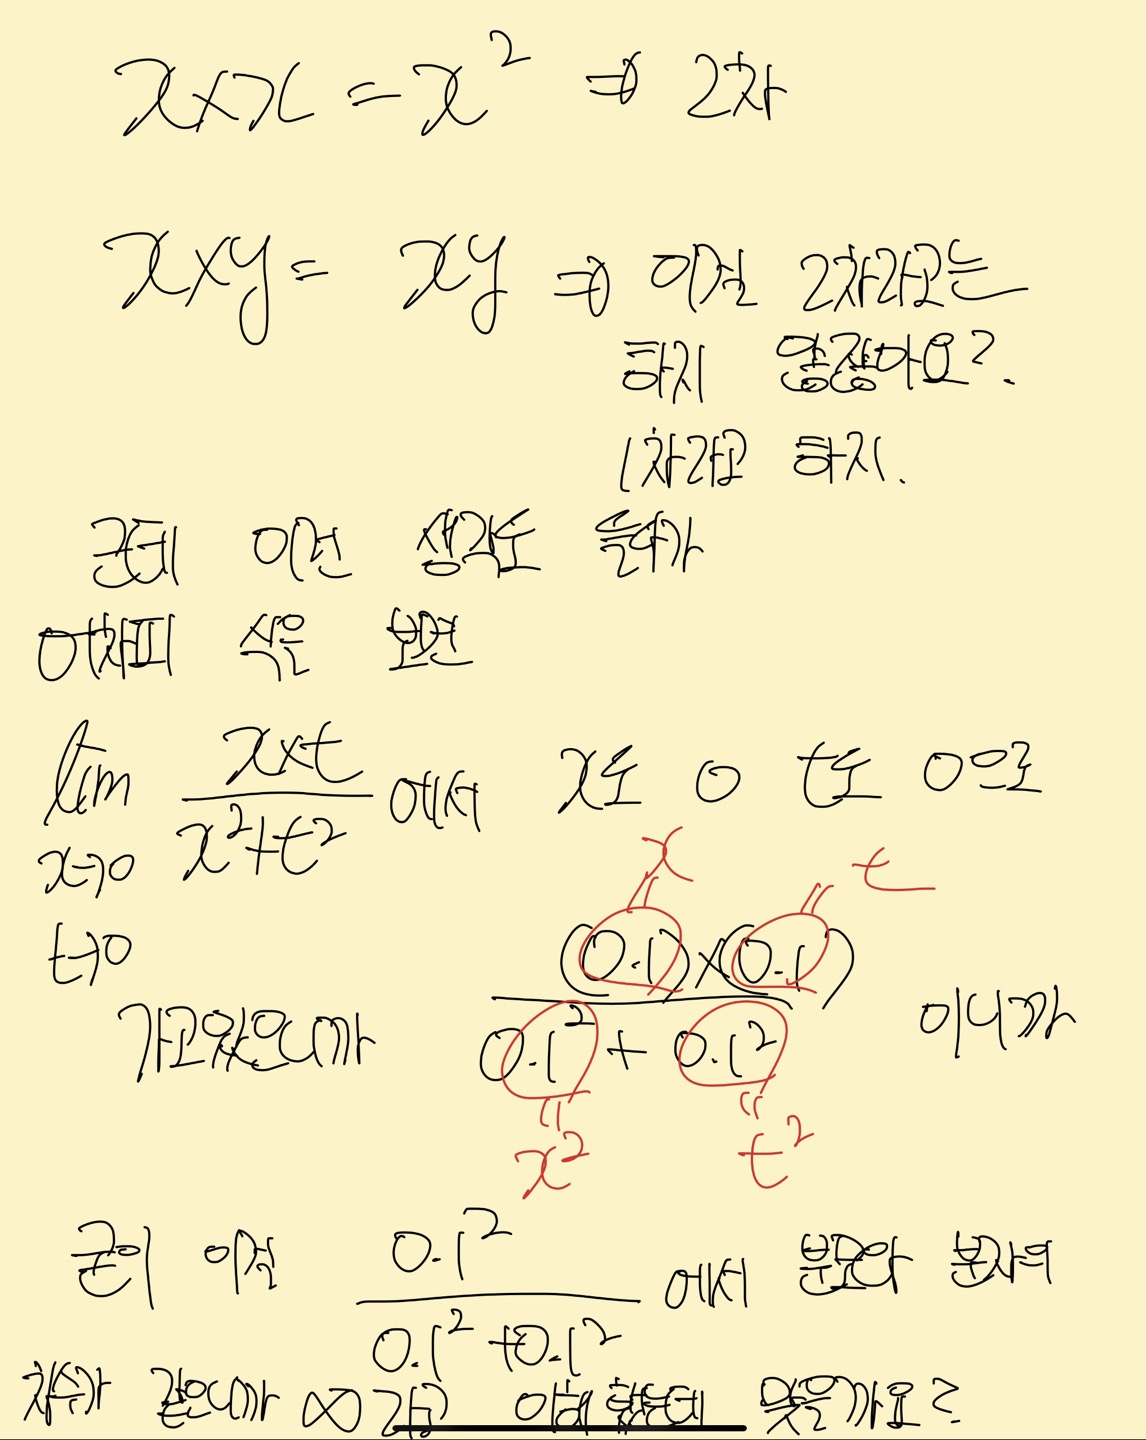 x×x = x² ⇒ 2차
x×y = xy ⇒ 이걸 2차라고는
하지 않잖아요?.
1차라고 하지.
근데 이런 생각도 들다가
어차피 식은 보면
lim x×t / x²+t² 에서 x도 0 t도 0으로
x→0
t→0
x t
가고있으니까 (0.1)×(0.1) / 0.1² + 0.1² 이니까
x² t²
굳이 이걸 0.1² / 0.1²+0.1² 에서 분모와 분자의
차수가 같으니까 이해했는데 맞을까요?